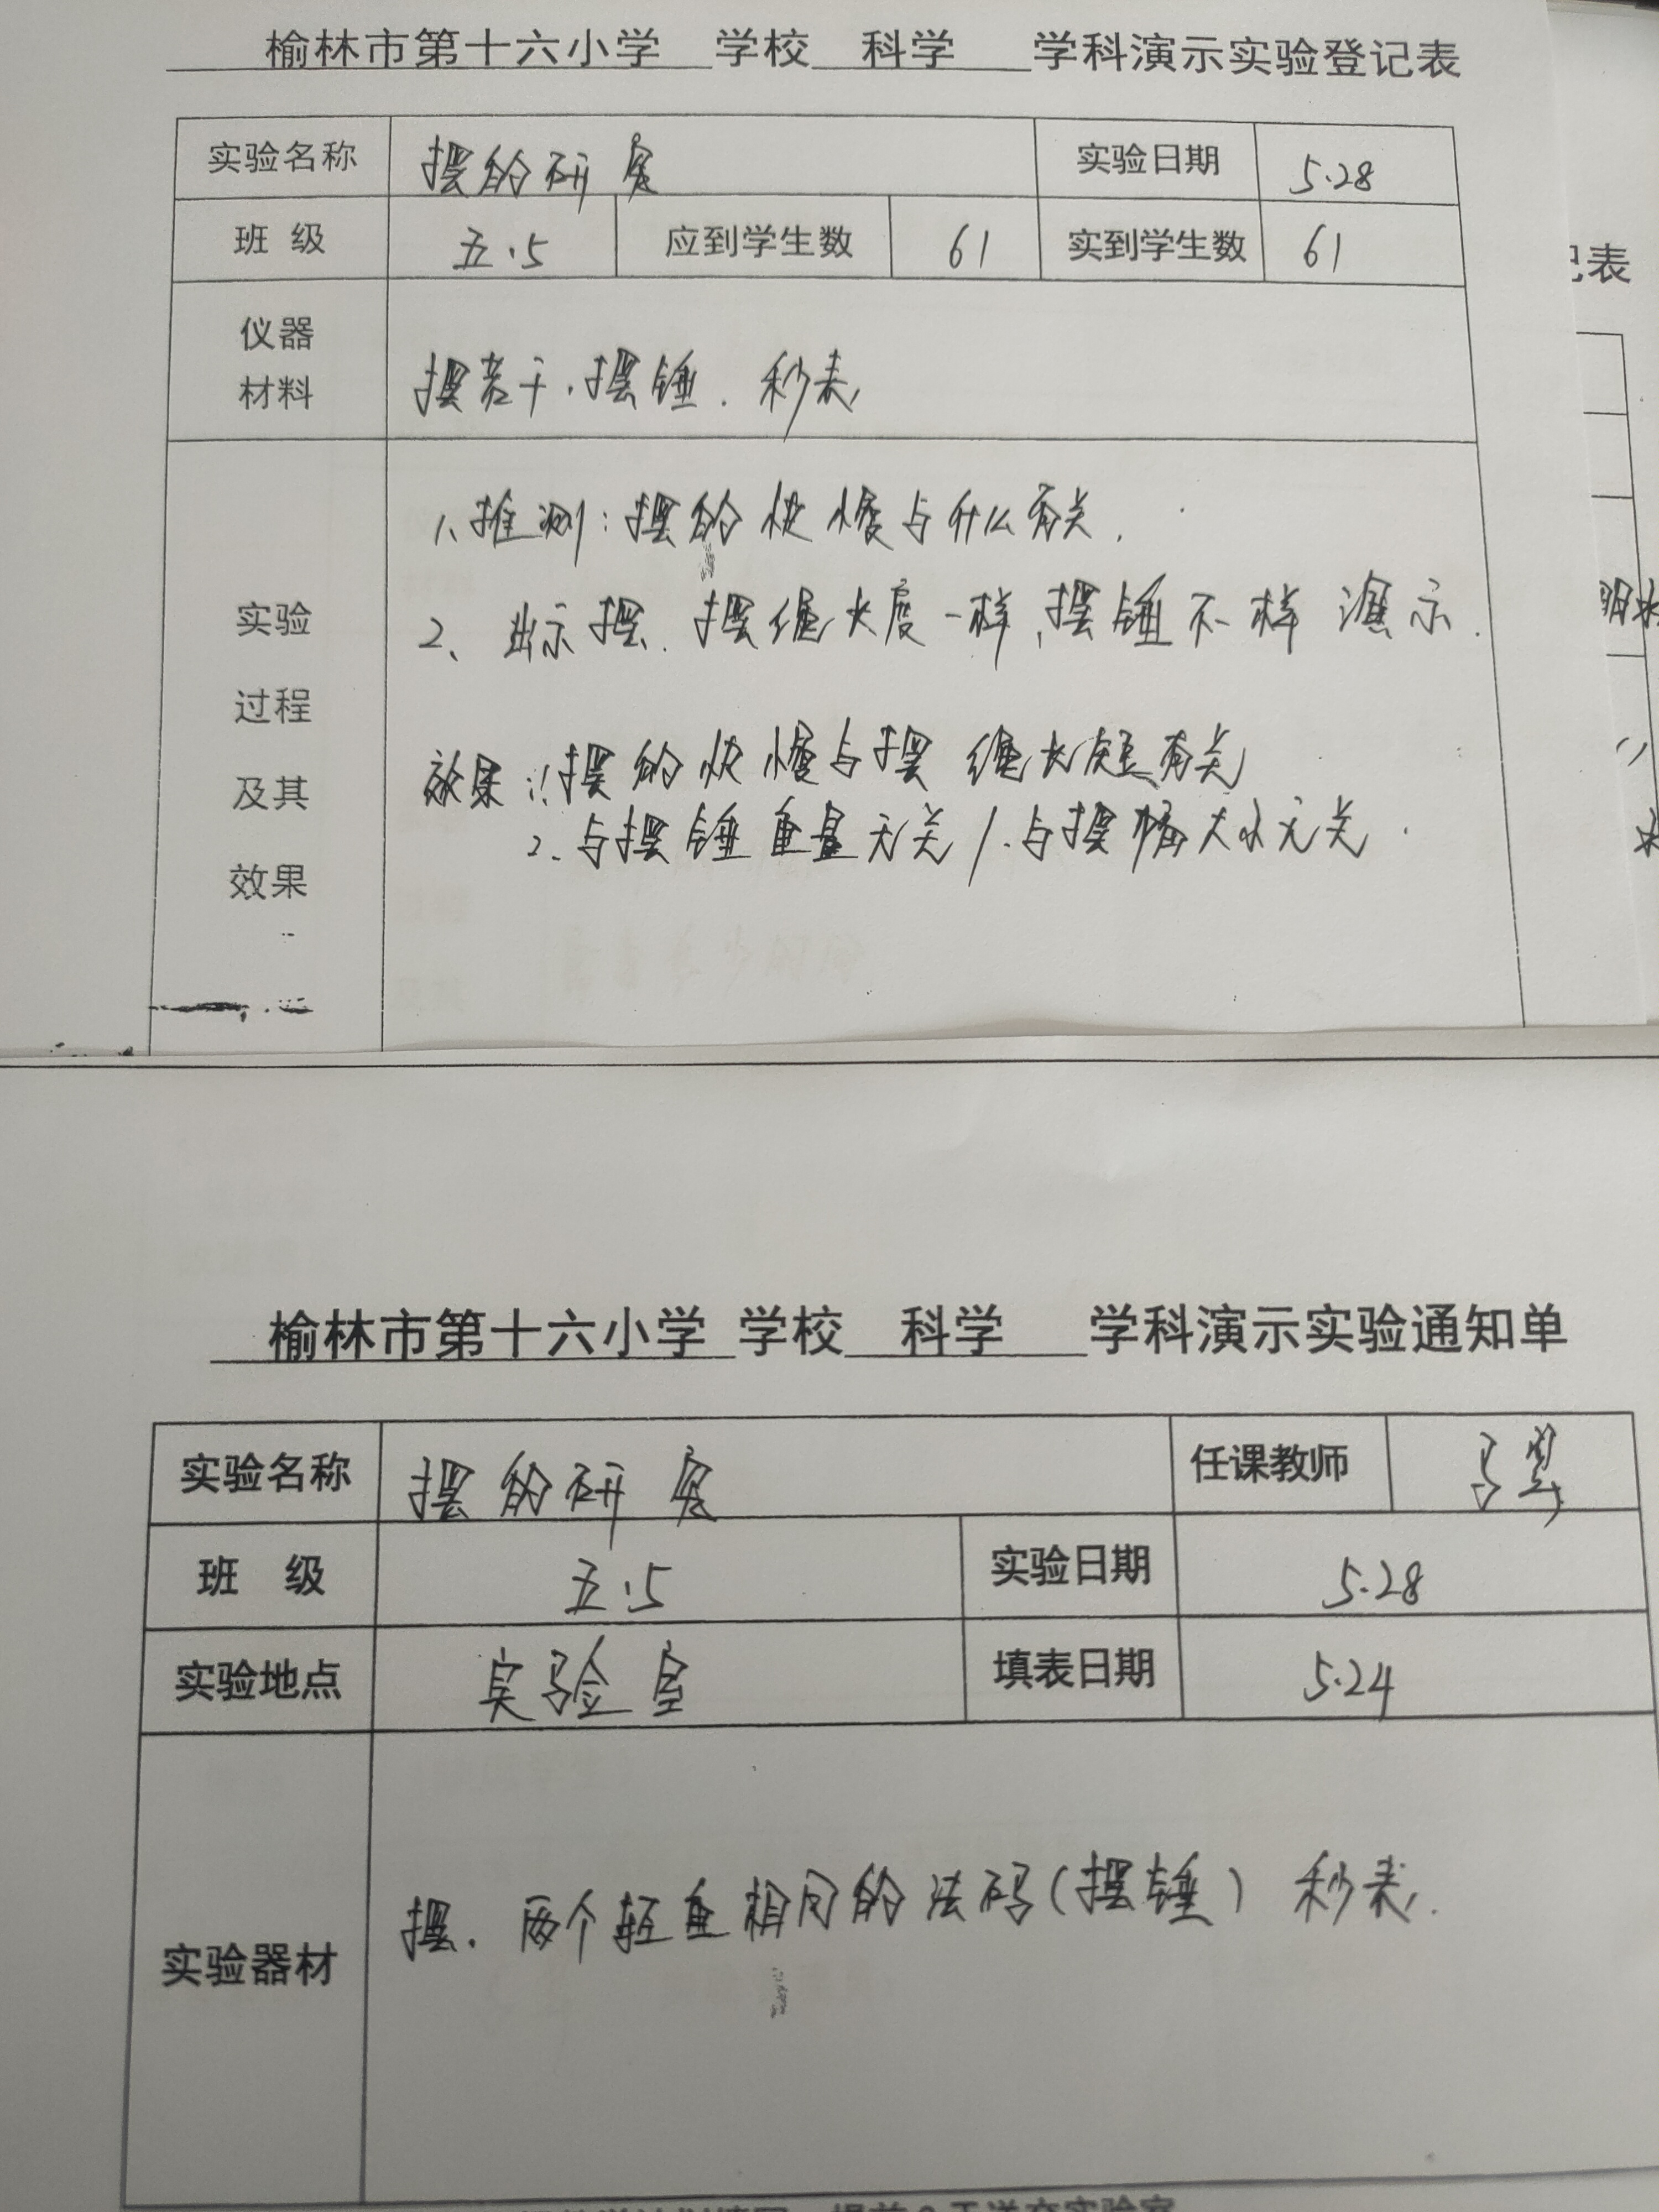 榆林市第十六小学 学校 科学 学科演示实验登记表
实验名称 摆的研究 实验日期 5.28
班 级 五.5 应到学生数 61 实到学生数 61
记表
仪器
材料
摆若干.摆锤.秒表
1、推测:摆的快慢与什么有关.
2、出示摆.摆绳长度一样、摆锤不一样 演示.
实验
过程
及其
效果
效果:1.摆的快慢与摆绳长短有关
2.与摆锤重量无关/.与摆幅大小无关.
榆林市第十六小学 学校 科学 学科演示实验通知单
实验名称 摆的研究 任课教师
班 级 五.5 实验日期 5.28
实验地点 实验室 填表日期 5.24
实验器材 摆.两个轻重相同的法码(摆锤) 秒表.